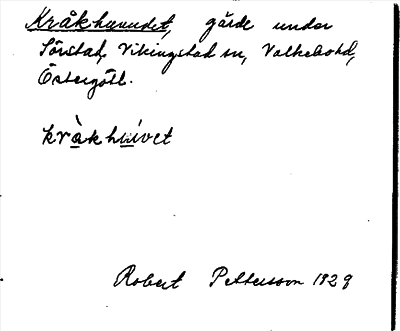 Kråkhuvudet, gärde under
Sörstad, Vikingstad sn, Valkebo hd,
Östergötl.
kràkhúvet
Robert Pettersson 1929